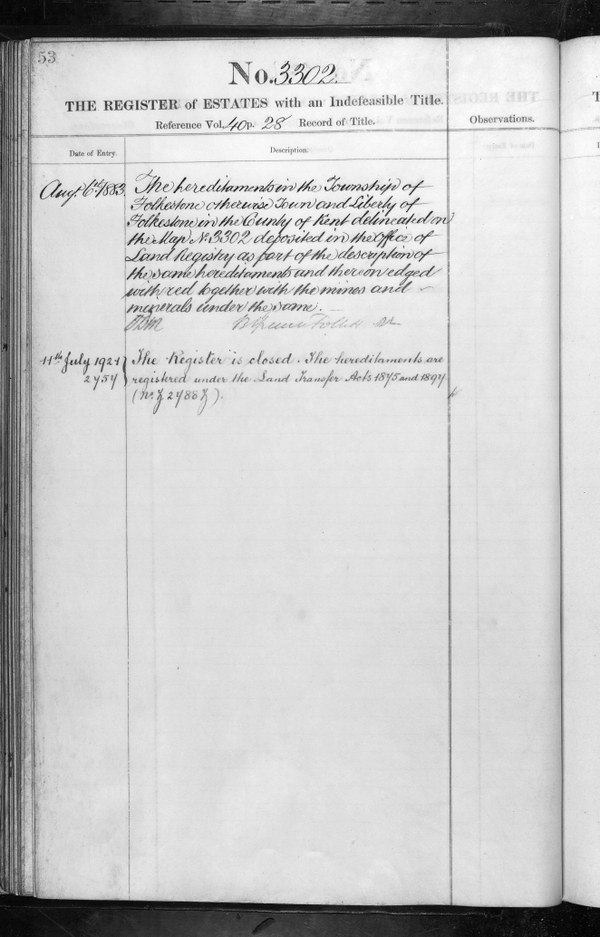 53
No. 3302.
THE REGISTER of ESTATES with an Indefeasible Title.
Reference Vol. 40 p. 28 Record of Title.
Observations.
Date of Entry.
Description.
Aug: 6th 1883.
The hereditaments in the Township of
Folkestone otherwise Town and Liberty of
Folkestone in the County of Kent delineated on
the Map No. 3302 deposited in the Office of
Land Registry as part of the description of
the same hereditaments and thereon edged
with red together with the mines and
minerals under the same.
11th July 1921
2757
The Register is closed. The hereditaments are
registered under the Land Transfer Acts 1875 and 1897